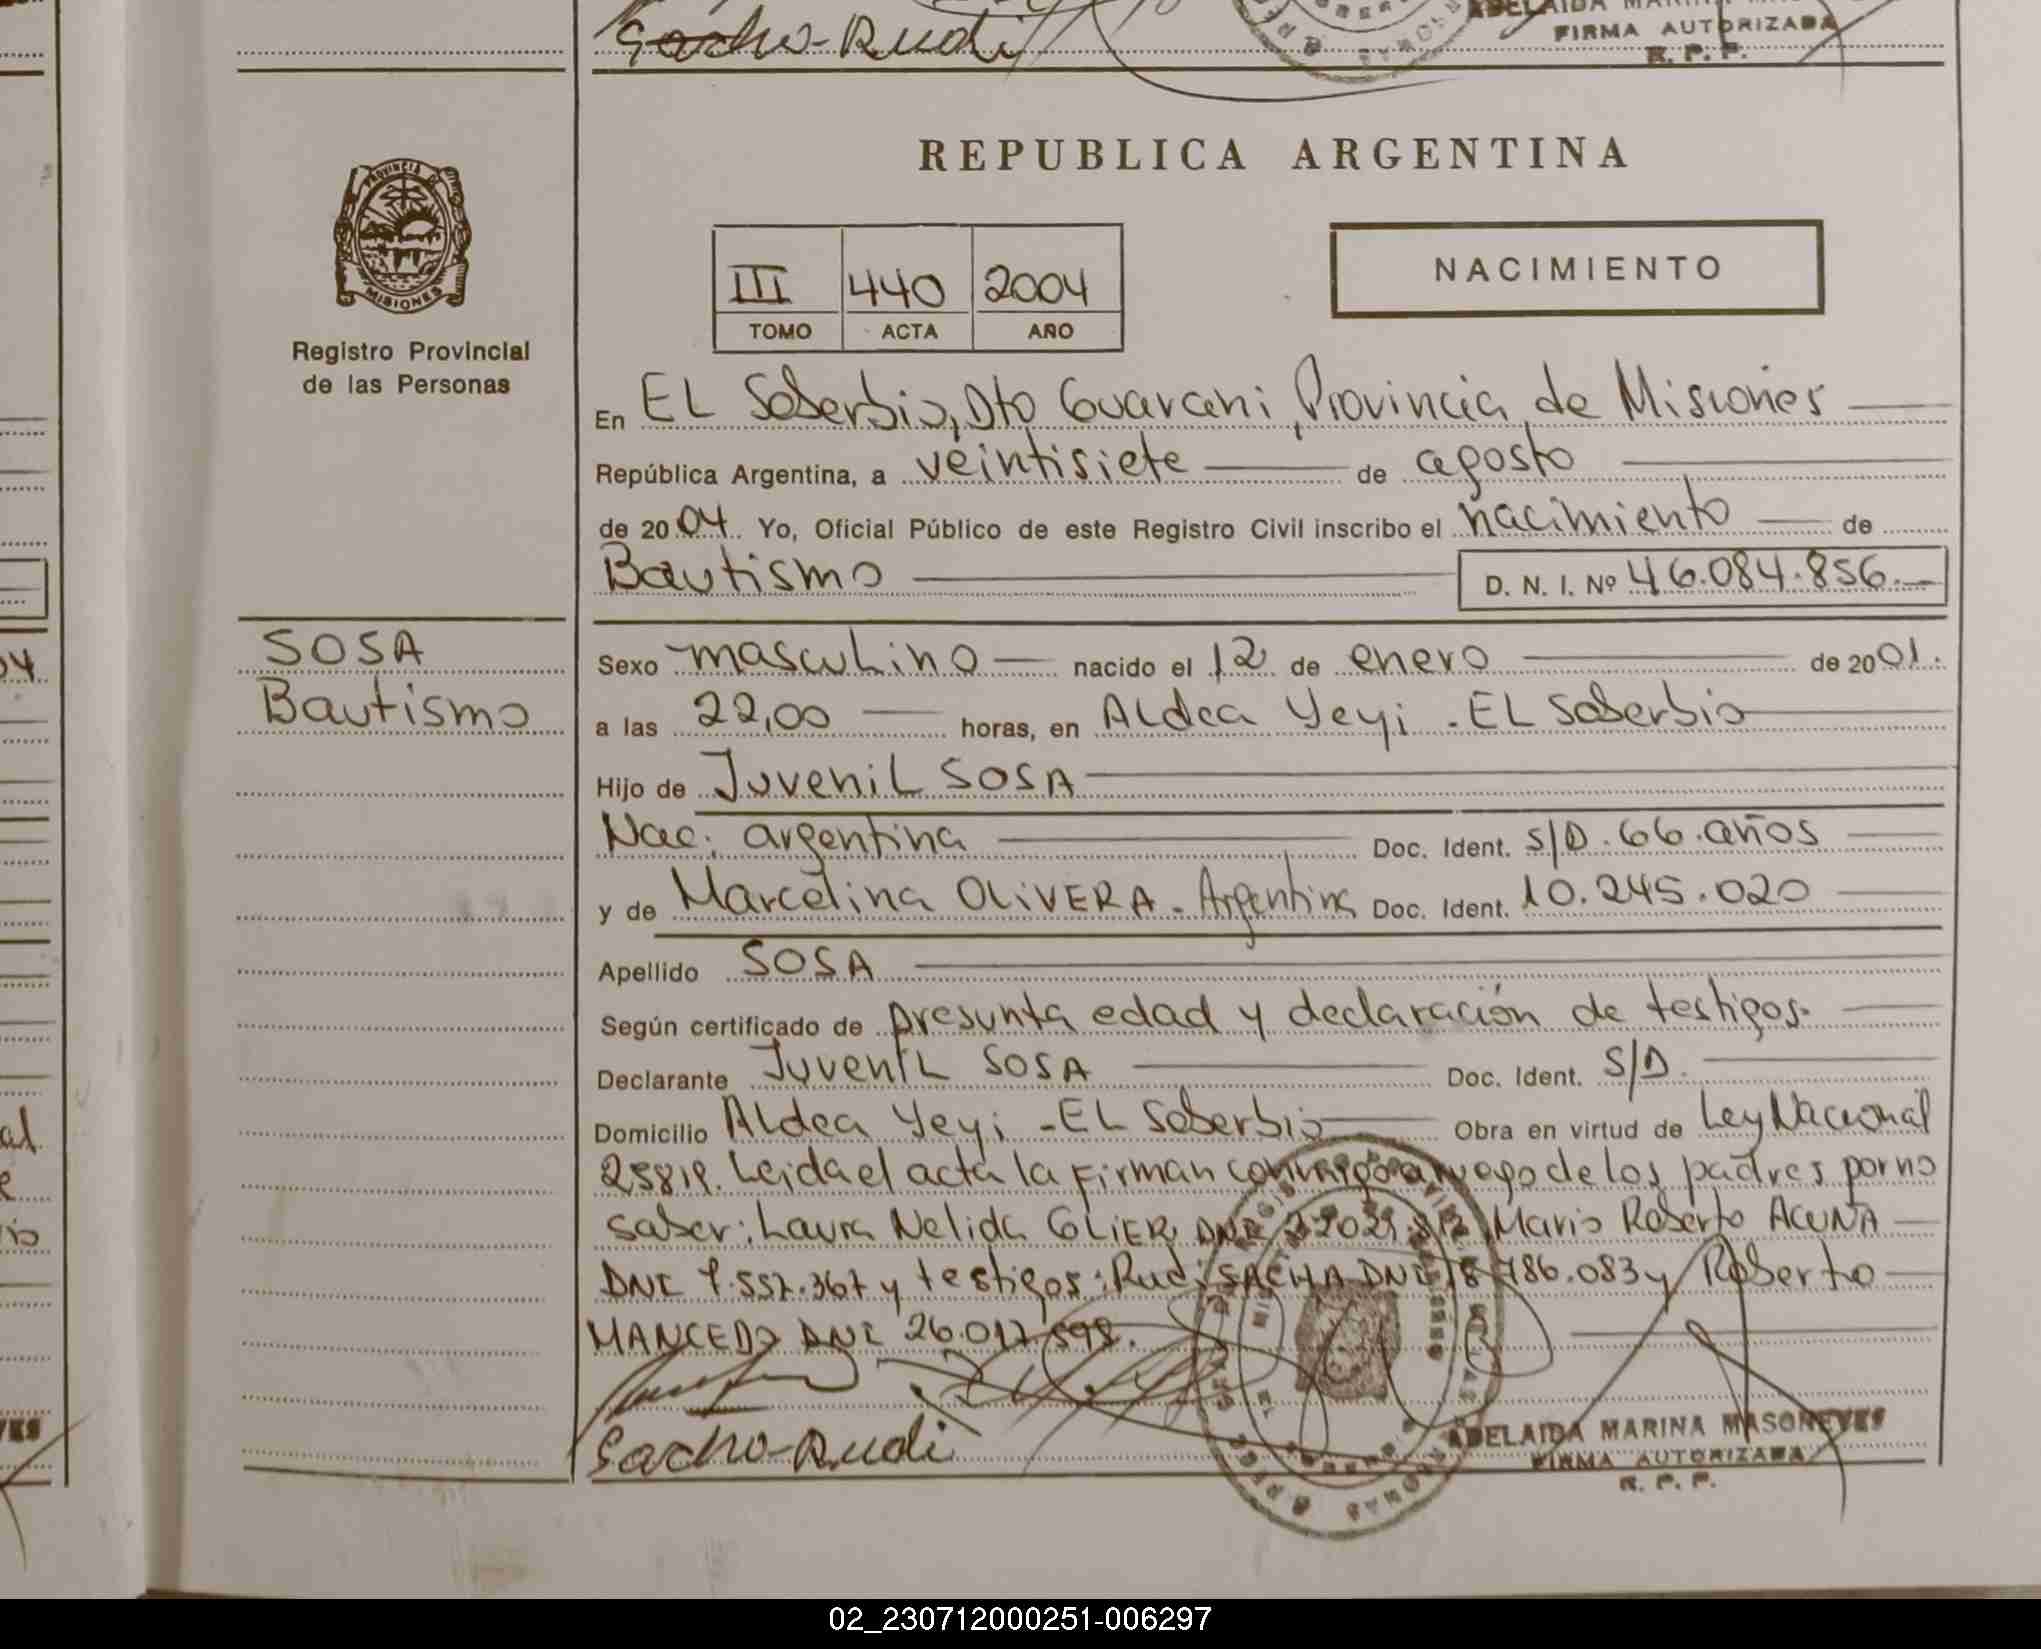 Sacho-Rudi
ADELAIDA MARINA
FIRMA AUTORIZADA
R. P. P.
REPUBLICA ARGENTINA
PROVINCIA DE
MISIONES
Registro Provincial
de las Personas
III 440 2004
TOMO ACTA AÑO
NACIMIENTO
En EL Soberbio, Dto Guarani, Provincia de Misiones
República Argentina, a veintisiete de agosto
de 2004. Yo, Oficial Público de este Registro Civil inscribo el nacimiento de
Bautismo D. N. I. Nº 46.084.856.
SOSA
Bautismo
Sexo masculino nacido el 12 de enero de 2001.
a las 22,00 horas, en Aldea Yeyi - EL Soberbio
Hijo de Juvenil SOSA
Nac: argentina Doc. Ident. S/D. 66 años
y de Marcelina OLIVERA - Argentina Doc. Ident. 10.245.020
Apellido SOSA
Según certificado de presunta edad y declaración de testigos.
Declarante Juvenil SOSA Doc. Ident. S/D.
Domicilio Aldea Yeyi - EL Soberbio Obra en virtud de Ley Nacional
25819. Leida el acta la firman conmigo a ruego de los padres por no
saber: Laura Nelida GLIER, DNI Mario Roberto ACUÑA
DNI 7.557.367 y testigos: Rudi SACHA DNI 18.786.083 y Roberto
MANCEDO DNI 26.017.598.
Sacho-Rudi
ADELAIDA MARINA MASONEVES
FIRMA AUTORIZADA
R. P. P.
02_230712000251-006297